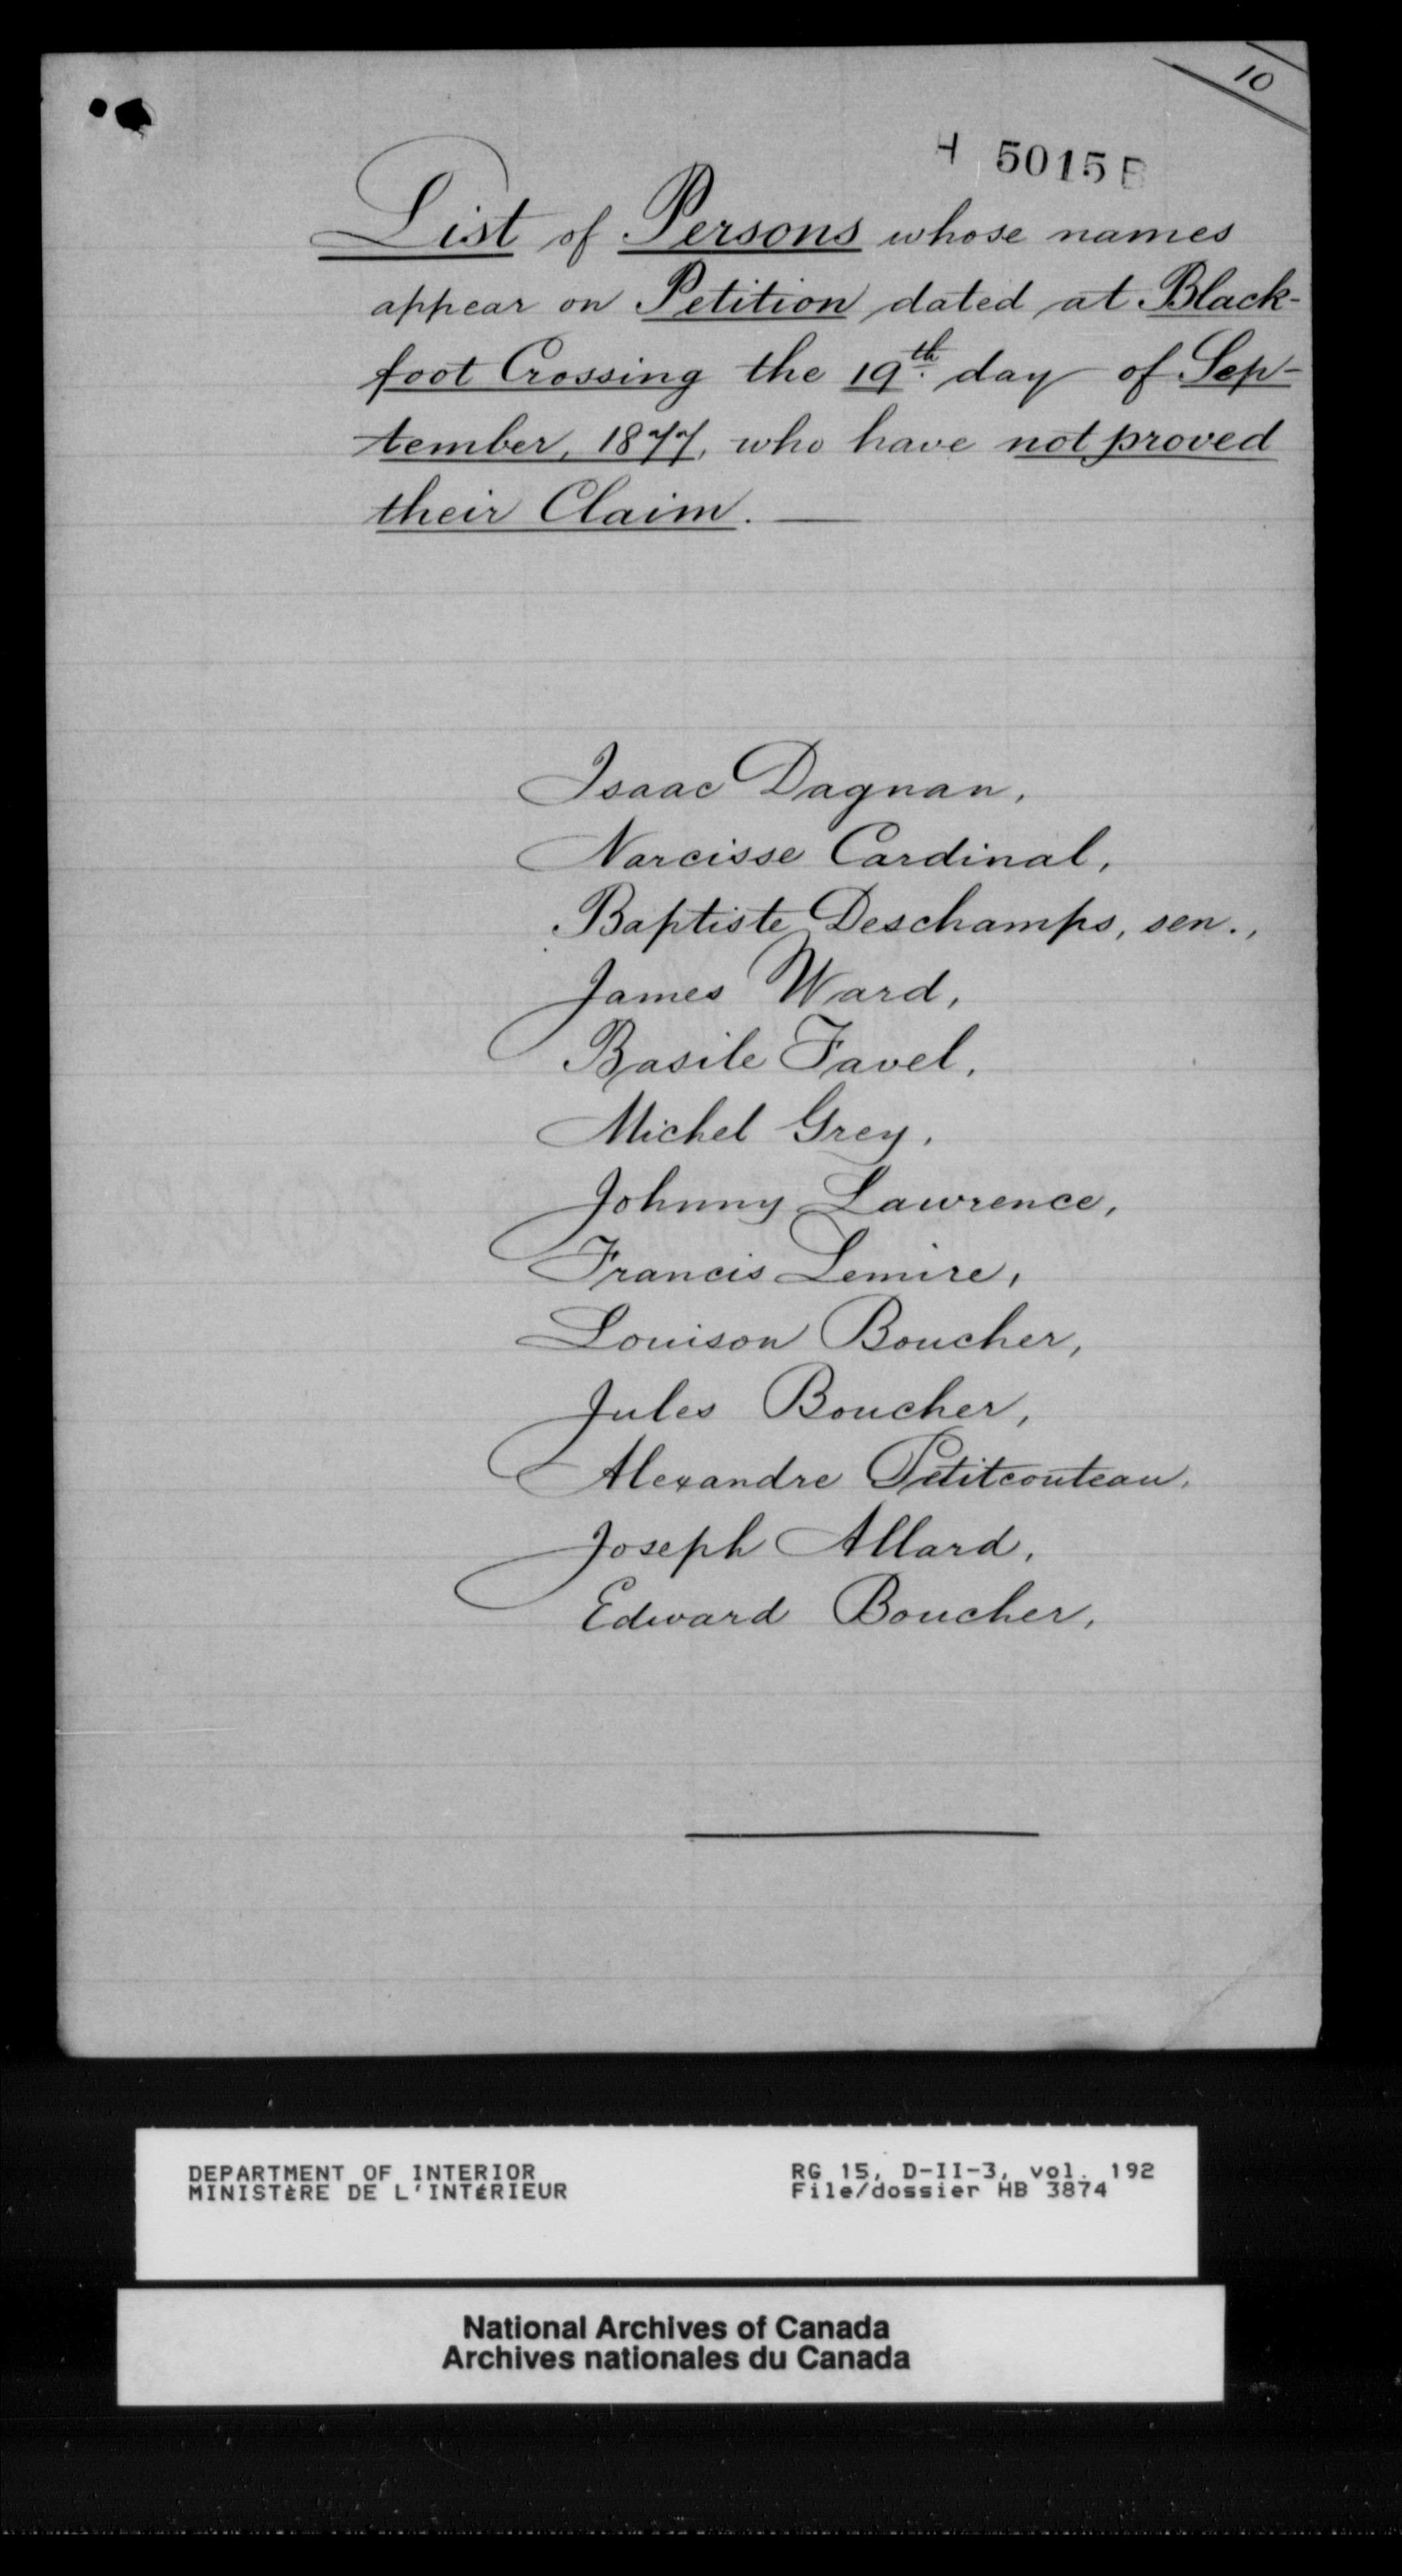 10
H 5015 B
List of Persons whose names
appear on Petition dated at Black-
foot Crossing the 19th. day of Sep-
tember, 1877, who have not proved
their Claim. —
Isaac Dagnan,
Narcisse Cardinal,
Baptiste Deschamps, sen.,
James Ward,
Basile Favel,
Michel Grey,
Johnny Lawrence,
Francis Lemire,
Louison Boucher,
Jules Boucher,
Alexandre Petitcouteau,
Joseph Allard,
Edward Boucher,
DEPARTMENT OF INTERIOR
MINISTÈRE DE L'INTÉRIEUR
RG 15, D-II-3, vol. 192
File/dossier HB 3874
National Archives of Canada
Archives nationales du Canada